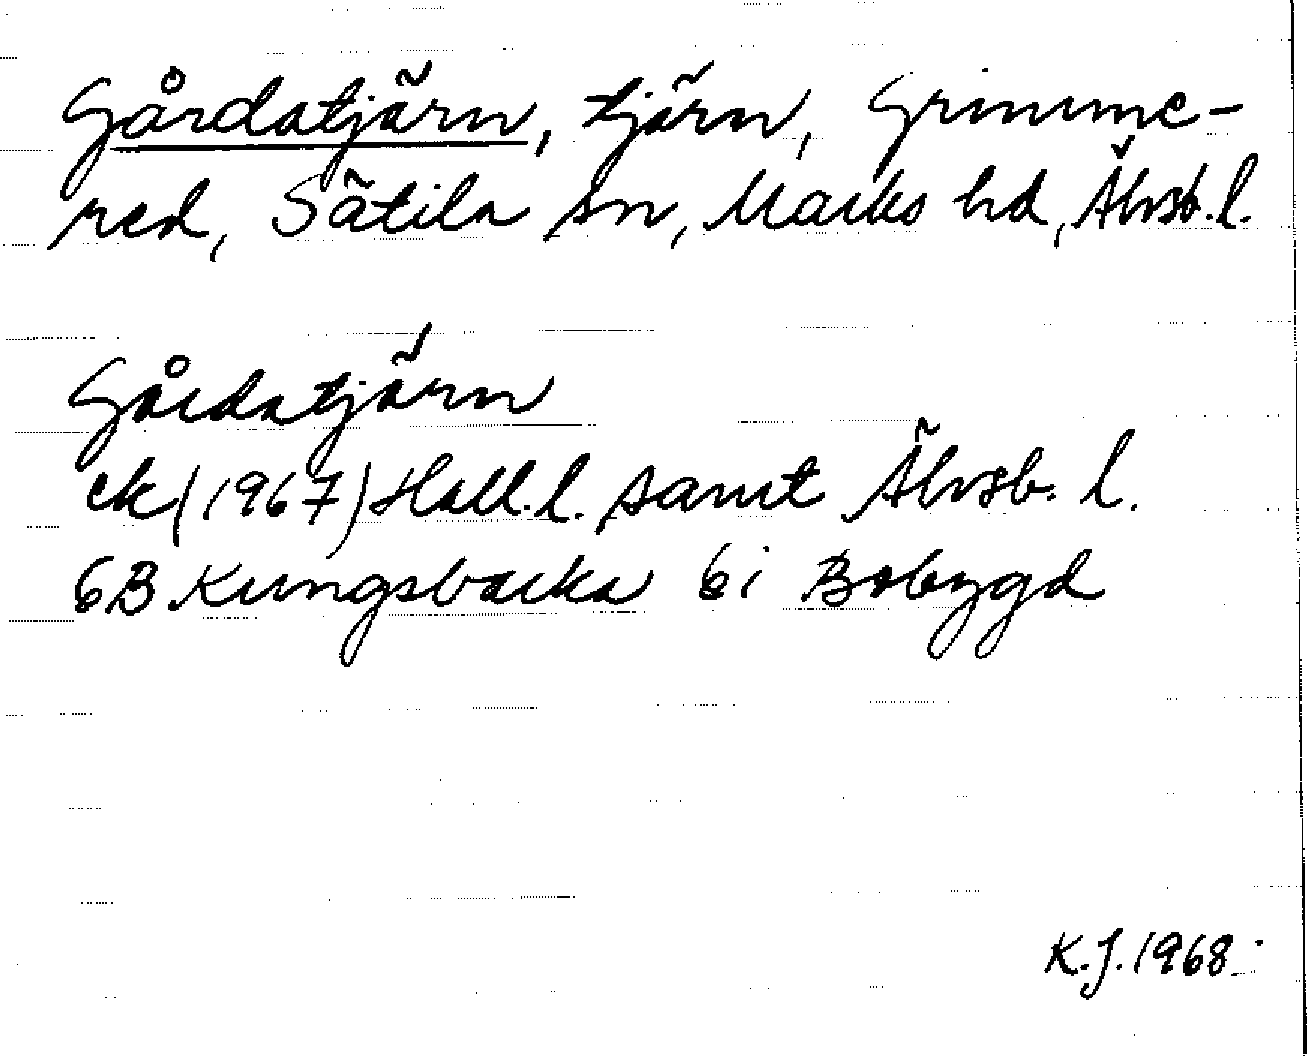 Gårdatjärn, tjärn, Grimme-
red, Sätila sn, Marks hd, Älvsb. l.
Gårdatjärn
ek (1967) Hall. l. samt Älvsb. l.
6B Kungsbacka 6i Bobygd
K.J. 1968